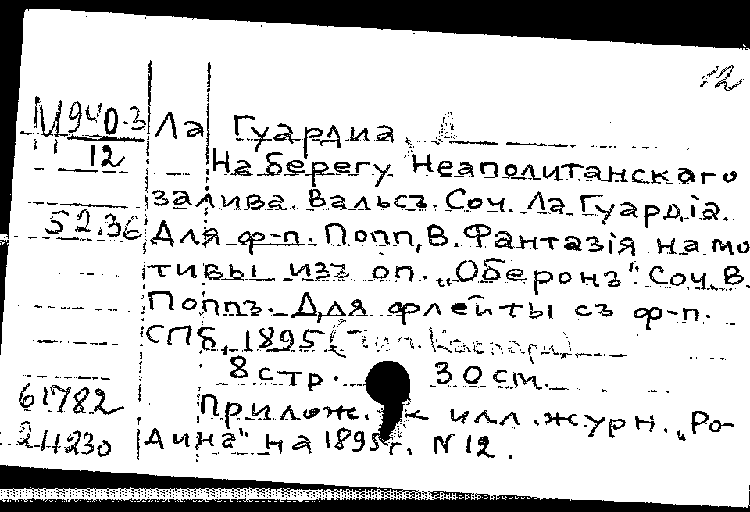 12
М940-3 Ла Гуардиа, А
12 На берегу Неаполитанскаго
залива. Вальсъ. Соч. Ла Гуардіа.
52.36 Для ф-п. Попп, В. Фантазія на мо
тивы изъ оп. „Оберонъ". Соч. В.
Поппъ. Для флейты съ ф-п.
СПб, 1895 (Тип. Каспари)
8 стр. 30 см.
61782 Прилож. к илл. журн. „Ро-
211230 дина" на 1895 г. N 12.